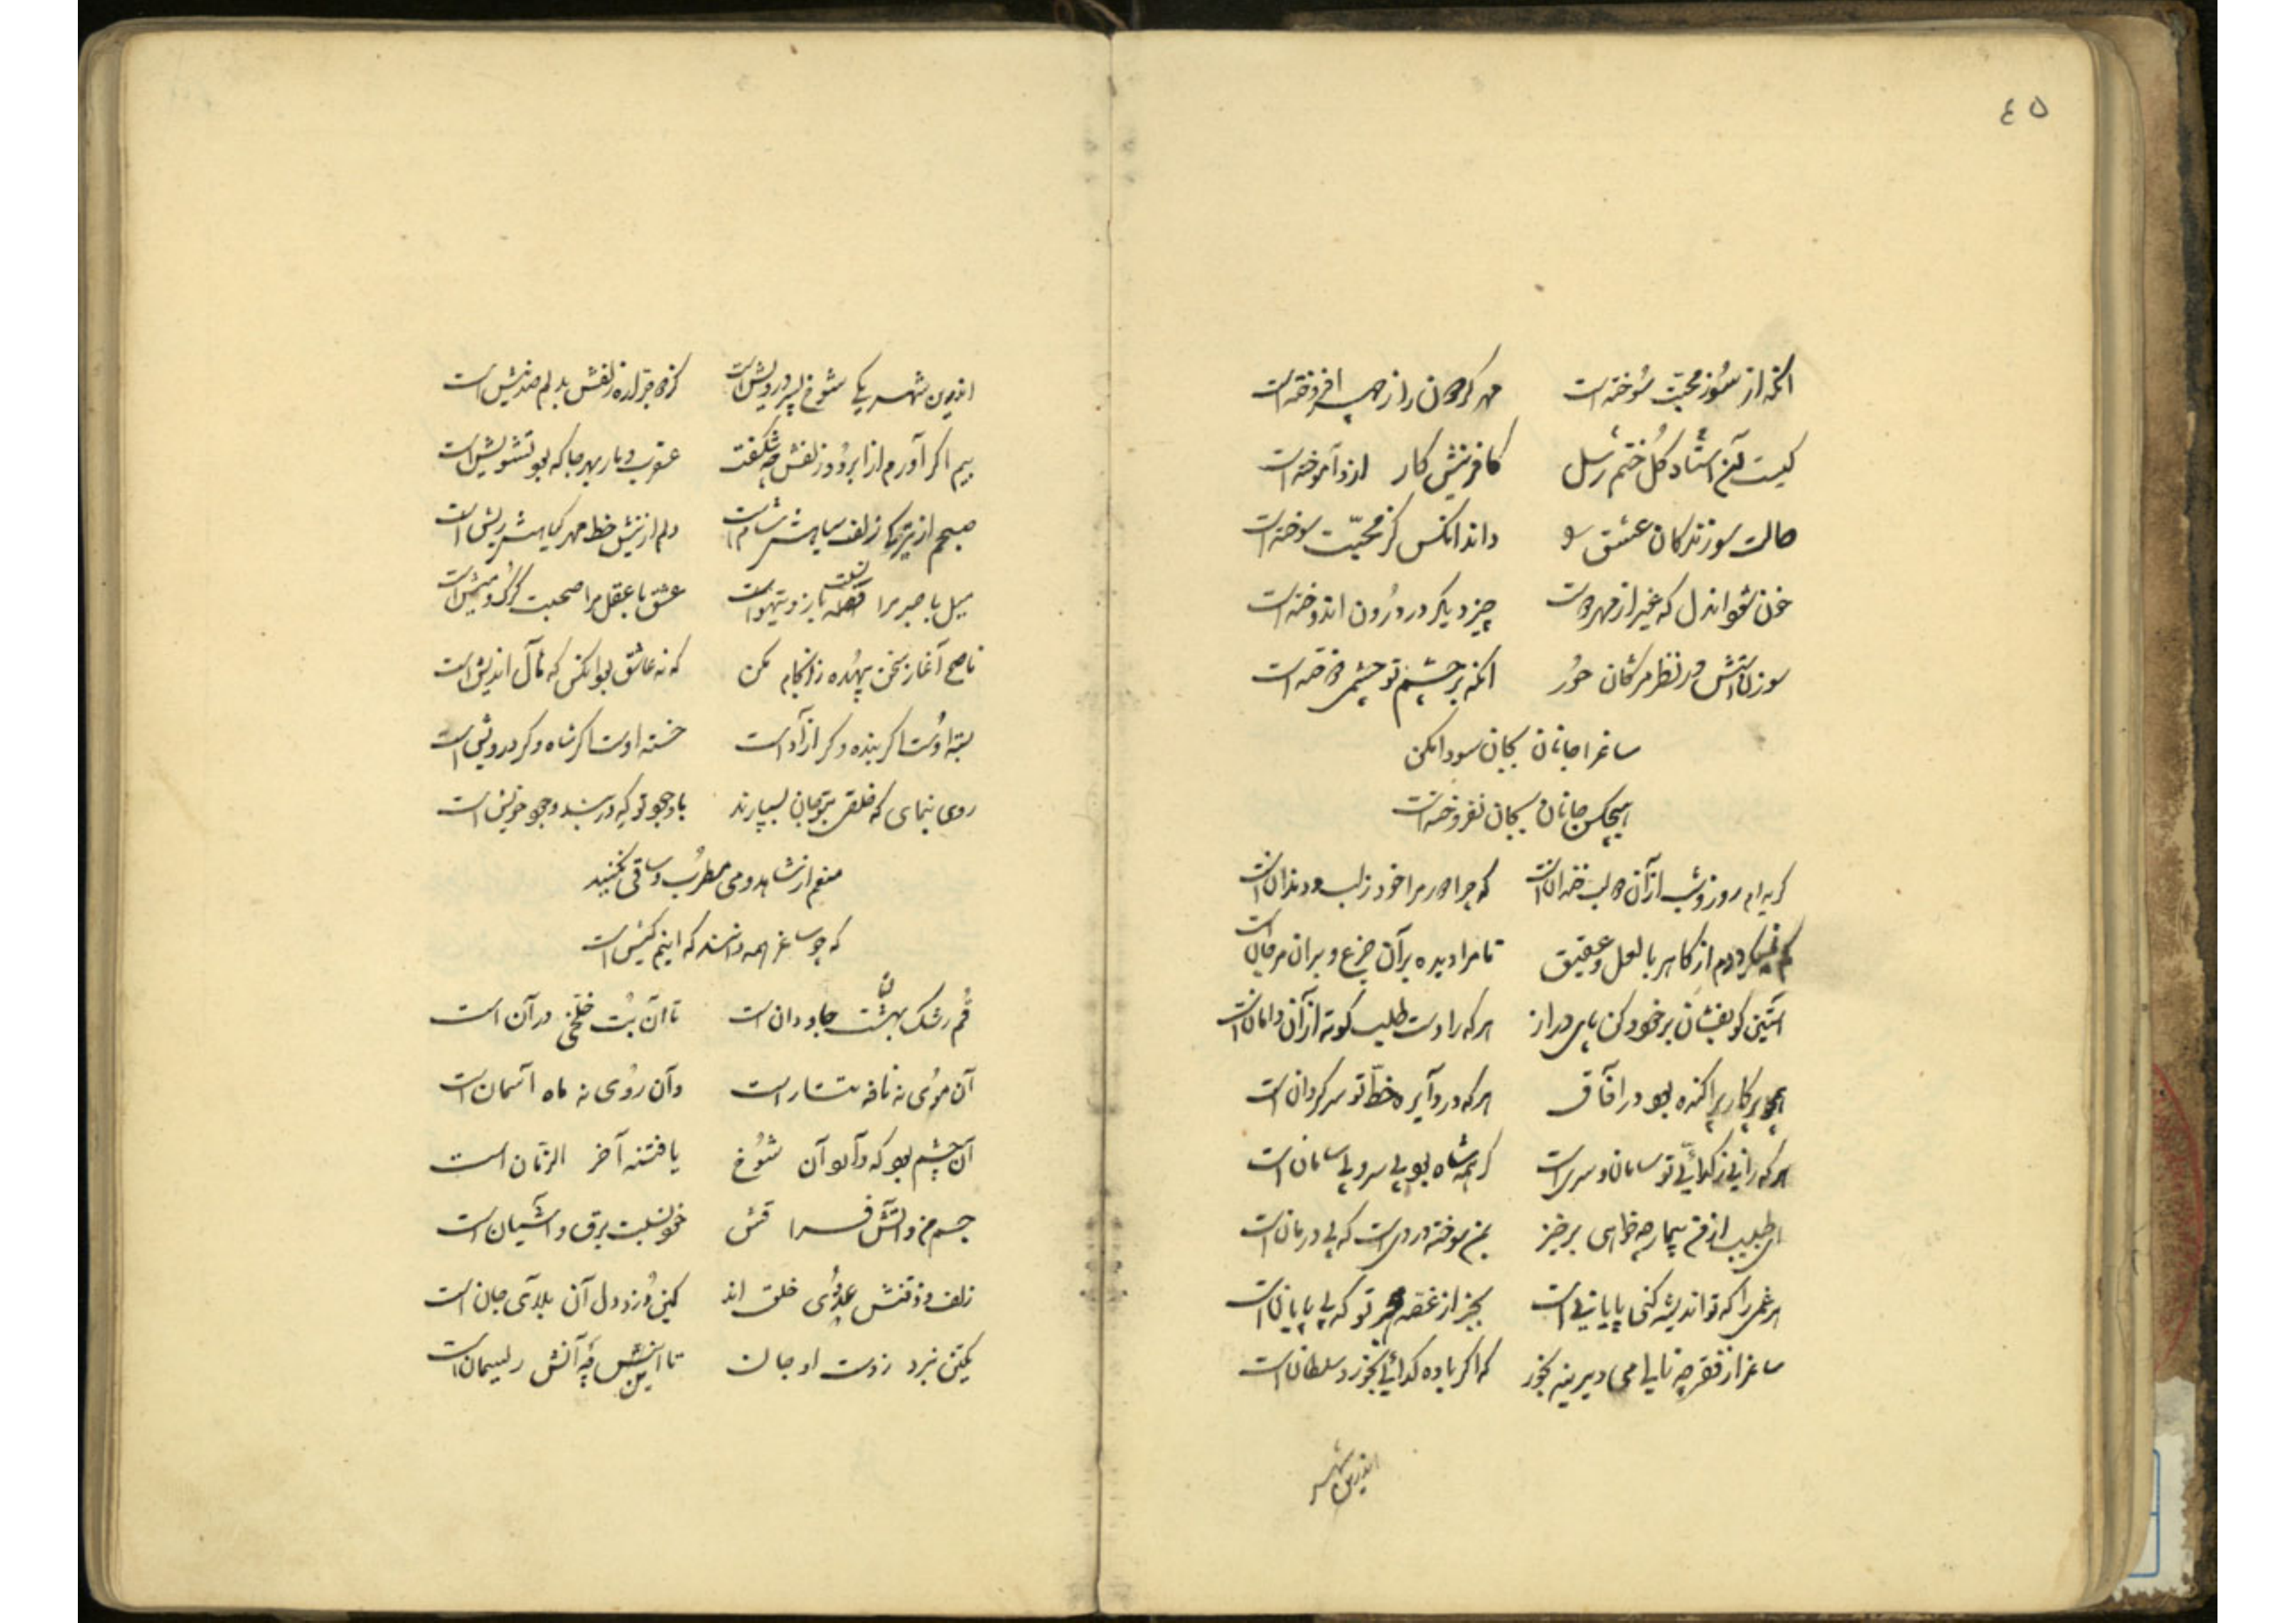 ٤٥
آنکه از سوز محبت سوخته است مهر کردون را ز مهر افروخته است
کیست آن استاد کل ختم رسل کافرینش کار از او آموخته است
حالت سوزندکان عشق او داند آنکس کز محبت سوخته است
خون شود آندل که غیر از مهر دوست چیز دیکر در درون اندوخته است
سوزن آتش در نظر مژکان حور آنکه بر چشم تو چشمی دوخته است
ساغرا جانان بجان سودا مکن
هیچکس جانان بجان نفروخته است
کریه ام روز و شب از آن لب خندان است که چرا دور مرا خود ز لب و دندان است
از کاهر با لعل و عقیق تا مرا دیده بر آن جزع و بر آن مرجان است
آستین کو بفشان بر خود کن پای دراز هر که را دست طلب کوته از آن دامان است
همچو پرکار پراکنده بود در آفاق هر که در دایره خط تو سرکردان است
هر که را نی ز کدائی تو سامان و سری است کر همه شاه بود بی سر و بی سامان است
ای طبیب از من بیمار چه خواهی برخیز بمن سوخته دردی است که بی درمان است
هر غمی را که تو اندیشه کنی پایانی است بجز از غصه هجر تو که بی پایان است
ساغر از فقر چه نالی می دیرینه بخور که اکر باده کدائی بخورد سلطان است
اندرین شهر
اندرین شهر یکی شوخ پسر درویش است کز دو جراره زلفش بدلم صد نیش است
بیم اکر آورم از ابرو و زلفش چه شکفت عقرب و مار بهر جا که بود تشویش است
صبحم از تیرکی زلف سیاهش شام است دلم از نیش خط مهر کیاهش ریش است
میل با صبر مرا قصه باز و تیهو است عشق با عقل مرا صحبت کرک و میش است
ناصح آغاز سخن بیهده ز انجام مکن که نه عاشق بود آنکس که مآل اندیش است
بسته اوست اکر بنده و کر آزاد است خسته اوست اکر شاه و کر درویش است
روی بنمای که خلقی بتو جان بسپارند با وجود تو که در بند وجود خویش است
منعم از شاهد و می مطرب و ساقی نکنید
که چو ساغر همه دانند که اینم کیش است
قم رشک بهشت جاودان است تا آن بت خلخی در آن است
آن موی نه نافه تتار است و آن روی نه ماه آسمان است
آن چشم بود که دارد آن شوخ یا فتنه آخر الزمان است
جسم من و آتش فراقش خود نسبت برق و آشیان است
زلف و ذقنش عدوی خلق اند کین دزد دل آن بلای جان است
یکتن نبرد ز دست او جان تا اینش چه آنش ریسمان است